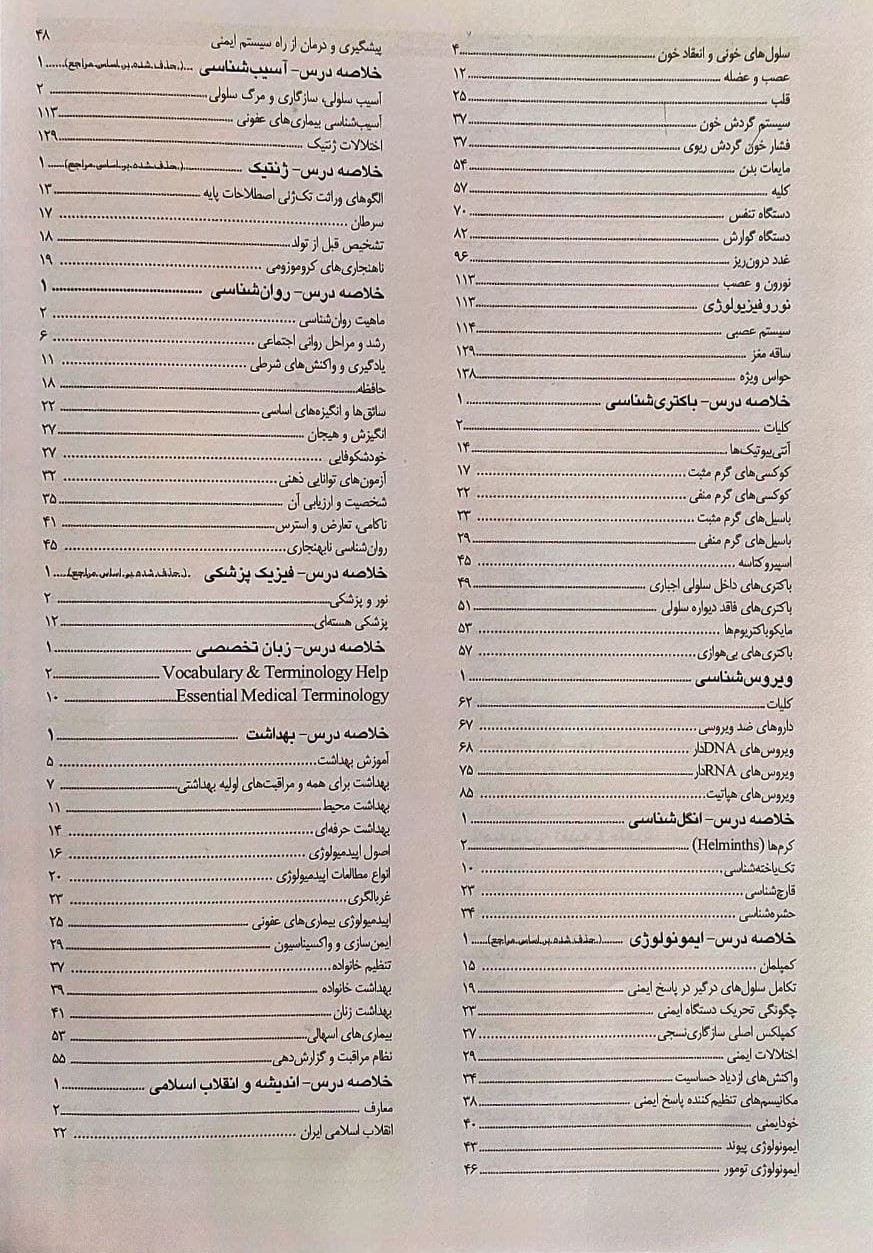 سلول‌های خونی و انعقاد خون ........ ۴
عصب و عضله ........ ۱۲
قلب ........ ۲۵
سیستم گردش خون ........ ۳۷
فشار خون گردش ریوی ........ ۳۷
مایعات بدن ........ ۵۴
کلیه ........ ۵۷
دستگاه تنفس ........ ۷۰
دستگاه گوارش ........ ۸۲
غدد درون‌ریز ........ ۹۶
نورون و عصب ........ ۱۱۳
نوروفیزیولوژی ........ ۱۱۳
سیستم عصبی ........ ۱۱۴
ساقه مغز ........ ۱۲۹
حواس ویژه ........ ۱۳۸
خلاصه درس- باکتری‌شناسی ........ ۱
کلیات ........ ۲
آنتی‌بیوتیک‌ها ........ ۱۴
کوکسی‌های گرم مثبت ........ ۱۷
کوکسی‌های گرم منفی ........ ۲۲
باسیل‌های گرم مثبت ........ ۲۳
باسیل‌های گرم منفی ........ ۲۹
اسپیروکتاسه ........ ۴۵
باکتری‌های داخل سلولی اجباری ........ ۴۹
باکتری‌های فاقد دیواره سلولی ........ ۵۱
مایکوباکتریوم‌ها ........ ۵۳
باکتری‌های بی‌هوازی ........ ۵۷
ویروس‌شناسی ........ ۱
کلیات ........ ۶۲
داروهای ضد ویروسی ........ ۶۷
ویروس‌های DNAدار ........ ۶۸
ویروس‌های RNAدار ........ ۷۵
ویروس‌های هپاتیت ........ ۸۵
خلاصه درس- انگل‌شناسی ........ ۱
کرم‌ها (Helminths) ........ ۲
تک‌یاخته‌شناسی ........ ۱۰
قارچ‌شناسی ........ ۲۳
حشره‌شناسی ........ ۳۴
خلاصه درس- ایمونولوژی ........ (حذف شده بر اساس مراجع) ........ ۱
کمپلمان ........ ۱۵
تکامل سلول‌های درگیر در پاسخ ایمنی ........ ۱۹
چگونگی تحریک دستگاه ایمنی ........ ۲۳
کمپلکس اصلی سازگاری‌نسجی ........ ۲۷
اختلالات ایمنی ........ ۲۹
واکنش‌های ازدیاد حساسیت ........ ۳۴
مکانیسم‌های تنظیم‌کننده پاسخ ایمنی ........ ۳۸
خودایمنی ........ ۴۰
ایمونولوژی پیوند ........ ۴۳
ایمونولوژی تومور ........ ۴۶
پیشگیری و درمان از راه سیستم ایمنی ۴۸
خلاصه درس- آسیب‌شناسی ... (حذف شده بر اساس مراجع) ... ۱
آسیب سلولی، سازگاری و مرگ سلولی ........ ۲
آسیب‌شناسی بیماری‌های عفونی ........ ۱۱۳
اختلالات ژنتیک ........ ۱۲۹
خلاصه درس- ژنتیک ........ (حذف شده بر اساس مراجع) ........ ۱
الگوهای وراثت تک‌ژنی اصطلاحات پایه ........ ۱۳
سرطان ........ ۱۷
تشخیص قبل از تولد ........ ۱۸
ناهنجاری‌های کروموزومی ........ ۱۹
خلاصه درس- روان‌شناسی ........ ۱
ماهیت روان‌شناسی ........ ۲
رشد و مراحل روانی اجتماعی ........ ۶
یادگیری و واکنش‌های شرطی ........ ۱۱
حافظه ........ ۱۸
سائق‌ها و انگیزه‌های اساسی ........ ۲۲
انگیزش و هیجان ........ ۲۷
خودشکوفایی ........ ۲۷
آزمون‌های توانایی ذهنی ........ ۳۲
شخصیت و ارزیابی آن ........ ۳۵
ناکامی، تعارض و استرس ........ ۴۱
روان‌شناسی نابهنجاری ........ ۴۵
خلاصه درس- فیزیک پزشکی . (حذف شده بر اساس مراجع) .... ۱
نور و پزشکی ........ ۲
پزشکی هسته‌ای ........ ۱۲
خلاصه درس- زبان تخصصی ........ ۱
Vocabulary & Terminology Help ........ ۲
Essential Medical Terminology ........ ۱۰
خلاصه درس- بهداشت ........ ۱
آموزش بهداشت ........ ۵
بهداشت برای همه و مراقبت‌های اولیه بهداشتی ........ ۷
بهداشت محیط ........ ۱۱
بهداشت حرفه‌ای ........ ۱۴
اصول اپیدمیولوژی ........ ۱۶
انواع مطالعات اپیدمیولوژی ........ ۲۰
غربالگری ........ ۲۳
اپیدمیولوژی بیماری‌های عفونی ........ ۲۵
ایمن‌سازی و واکسیناسیون ........ ۲۹
تنظیم خانواده ........ ۳۷
بهداشت خانواده ........ ۳۹
بهداشت زنان ........ ۴۱
بیماری‌های اسهالی ........ ۵۳
نظام مراقبت و گزارش‌دهی ........ ۵۵
خلاصه درس- اندیشه و انقلاب اسلامی ........ ۱
معارف ........ ۲
انقلاب اسلامی ایران ........ ۲۲